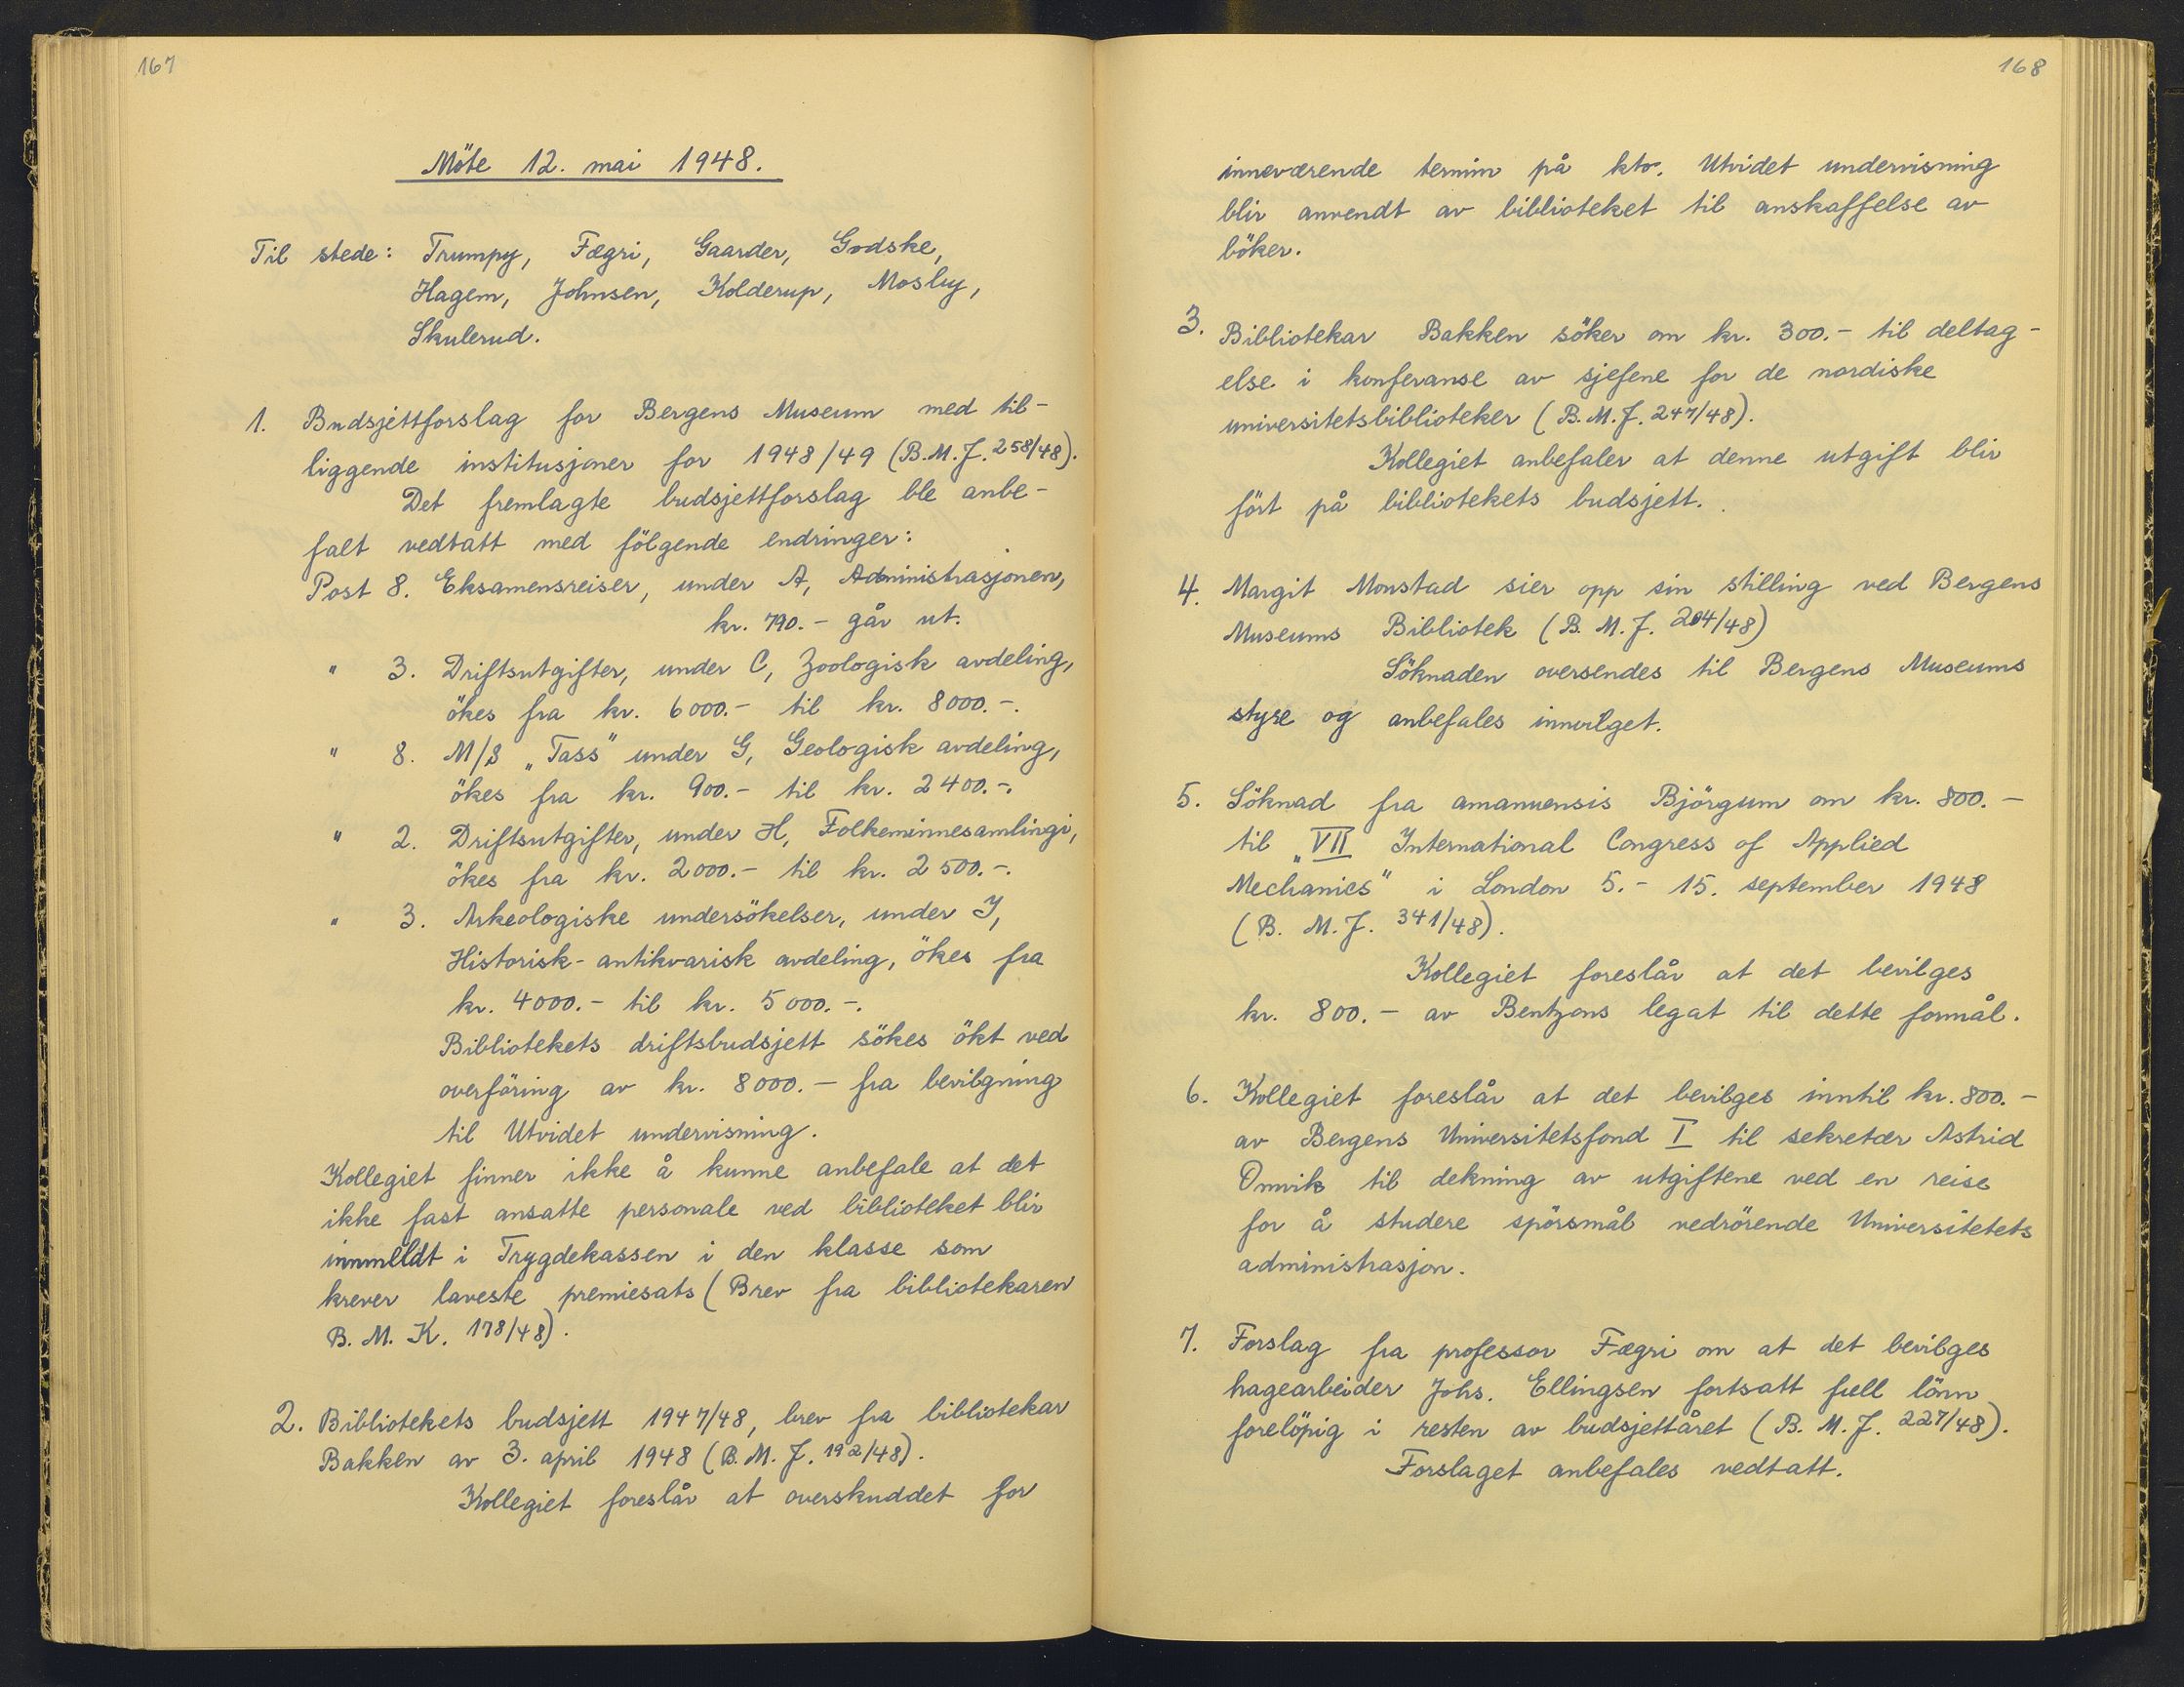 167
Möte 12. mai 1948.
Til stede: Trumpy, Fægri, Gaarder, Godske,
Hagem, Johnsen, Kolderup, Mosby,
Skulerud.
1. Budsjettforslag for Bergens Museum med til-
liggende institusjoner for 1948/49 (B.M.J. 258/48).
Det fremlagte budsjettforslag ble anbe-
falt vedtatt med fölgende endringer:
Post 8. Eksamensreiser, under A, Administrasjonen,
kr. 790.- går ut.
" 3. Driftsutgifter, under C, Zoologisk avdeling,
ökes fra kr. 6000.- til kr. 8000.-.
" 8. M/S „Tass" under G, Geologisk avdeling,
ökes fra kr. 900.- til kr. 2400.-.
" 2. Driftsutgifter, under H, Folkeminnesamlingi,
ökes fra kr. 2000.- til kr. 2500.-.
" 3. Arkeologiske undersökelser, under I,
Historisk-antikvarisk avdeling, ökes fra
kr. 4000.- til kr. 5000.-.
Bibliotekets driftsbudsjett sökes ökt ved
overföring av kr. 8000.- fra bevilgning
til Utvidet undervisning.
Kollegiet finner ikke å kunne anbefale at det
ikke fast ansatte personale ved biblioteket blir
innmeldt i Trygdekassen i den klasse som
krever laveste premiesats (Brev fra bibliotekaren
B. M. K. 178/48).
2. Bibliotekets budsjett 1947/48, brev fra bibliotekar
Bakken av 3. april 1948 (B.M.J. 192/48).
Kollegiet foreslår at overskuddet for
168
inneværende termin på kto. Utvidet undervisning
blir anvendt av biblioteket til anskaffelse av
böker.
3. Bibliotekar Bakken söker om kr. 300.- til deltag-
else i konferanse av sjefene for de nordiske
universitetsbiblioteker (B.M.J. 247/48).
Kollegiet anbefaler at denne utgift blir
fört på bibliotekets budsjett.
4. Margit Monstad sier opp sin stilling ved Bergens
Museums Bibliotek (B. M. J. 204/48)
Söknaden oversendes til Bergens Museums
styre og anbefales innvilget.
5. Söknad fra amanuensis Björgum om kr. 800.-
til „VII International Congress of Applied
Mechanics" i London 5.- 15. september 1948
(B. M. J. 341/48).
Kollegiet foreslår at det bevilges
kr. 800.- av Bentzons legat til dette formål.
6. Kollegiet foreslår at det bevilges inntil kr. 800.-
av Bergens Universitetsfond I til sekretær Astrid
Omvik til dekning av utgiftene ved en reise
for å studere spörsmål vedrörende Universitetets
administrasjon.
7. Forslag fra professor Fægri om at det bevilges
hagearbeider Johs. Ellingsen fortsatt full lönn
forelöpig i resten av budsjettåret (B. M. J. 227/48).
Forslaget anbefales vedtatt.